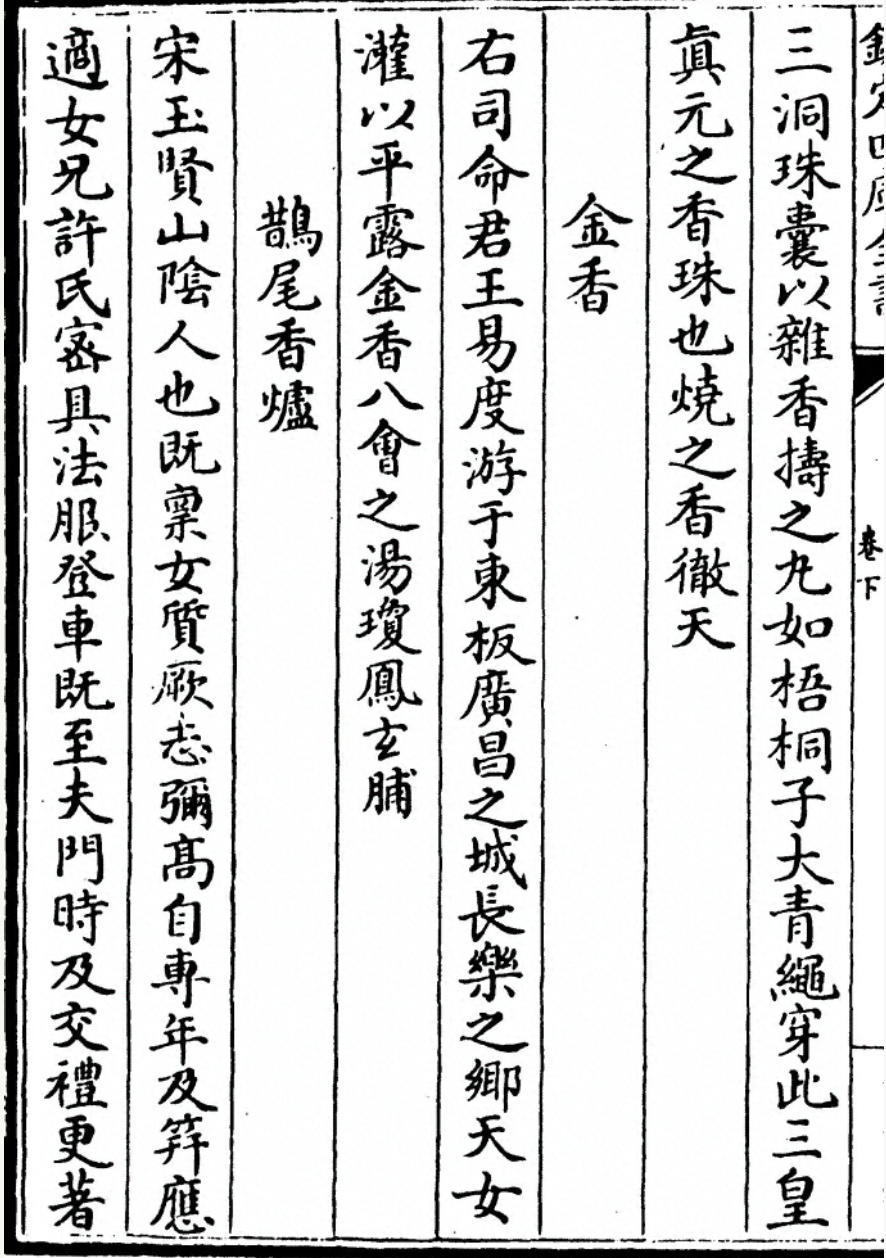 欽定四庫全書
卷下
三洞珠囊以雜香擣之丸如梧桐子大青繩穿此三皇
真元之香珠也燒之香徹天
金香
右司命君王易度游于東板廣昌之城長樂之鄉天女
灌以平露金香八會之湯瓊鳳玄脯
鵲尾香爐
宋玉賢山陰人也既稟女質厥志彌高自專年及笄應
適女兄許氏密具法服登車既至夫門時及交禮更著